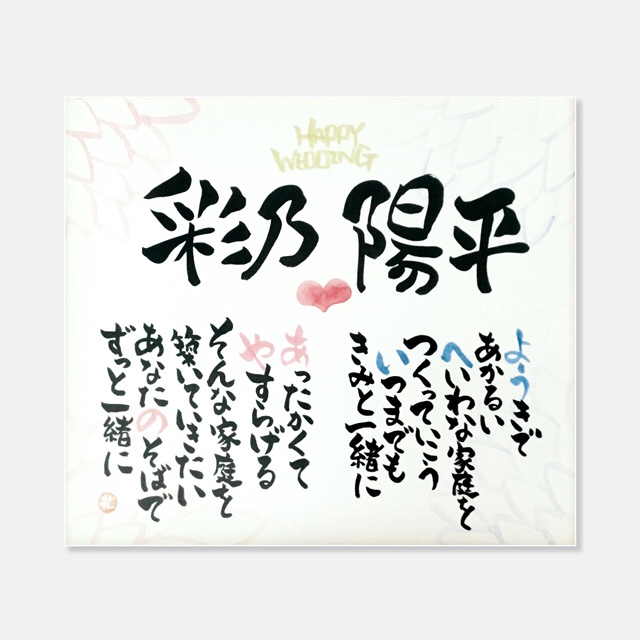 HAPPY
WEDDING
彩乃 陽平
ようきで
あかるい
へいわな家庭を
つくっていこう
いつまでも
きみと一緒に
あったかくて
やすらげる
そんな家庭を
築いていきたい
あなたのそばで
ずっと一緒に